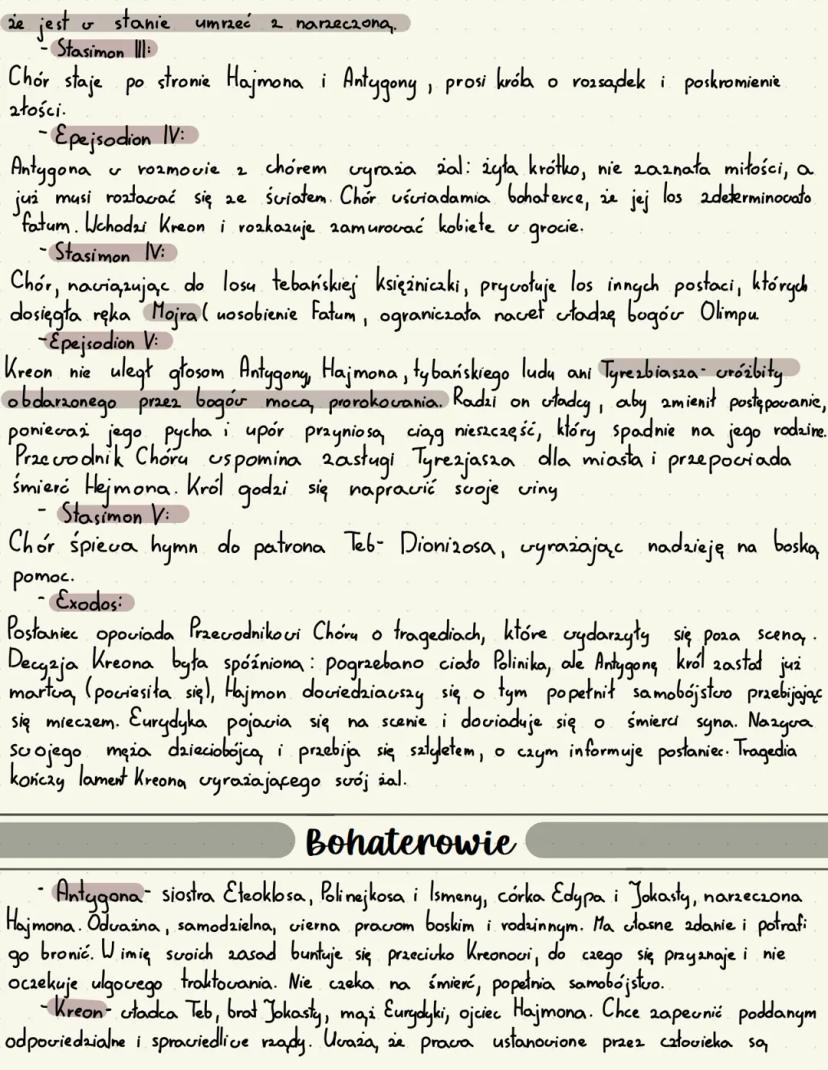 że jest w stanie umrzeć z narzeczoną.
- Stasimon III:
Chór staje po stronie Hajmona i Antygony, prosi króla o rozsądek i poskromienie
złości.
- Epejsodion IV:
Antygona w rozmowie z chórem wyraża żal: żyła krótko, nie zaznała miłości, a
już musi roztawać się ze światem. Chór uświadamia bohaterce, że jej los zdeterminowało
fatum. Wchodzi Kreon i rozkazuje zamurować kobietę w grocie.
- Stasimon IV:
Chór, nawiązując do losu tebańskiej księżniczki, prywołuje los innych postaci, których
dosięgła ręka Mojra (uosobienie Fatum, ograniczała nawet władzę bogów Olimpu
- Epejsodion V:
Kreon nie uległ głosom Antygony, Hajmona, tybańskiego ludu ani Tyrezbiasza- wróżbity
obdarzonego przez bogów mocą prorokowania. Radzi on władcy, aby zmienił postępowanie,
ponieważ jego pycha i upór przyniosą ciąg nieszczęść, który spadnie na jego rodzinę.
Przewodnik Chóru wspomina zasługi Tyrezjasza dla miasta i przepowiada
śmierć Hejmona. Król godzi się naprawić swoje winy
- Stasimon V:
Chór śpiewa hymn do patrona Teb- Dionizosa, wyrażając nadzieję na boską
pomoc.
- Exodos:
Posłaniec opowiada Przewodnikowi Chóru o tragediach, które wydarzyły się poza sceną.
Decyzja Kreona była spóźniona: pogrzebano ciało Polinika, ale Antygonę król zastał już
martwą (powiesiła się), Hajmon dowiedziawszy się o tym popełnił samobójstwo przebijając
się mieczem. Eurydyka pojawia się na scenie i dowiaduje się o śmierci syna. Nazywa
swojego męża dzieciobójcą i przebija się sztyletem, o czym informuje posłaniec. Tragedia
kończy lament Kreona wyrażającego swój żal.
Bohaterowie
- Antygona- siostra Eteoklosa, Polinejkosa i Ismeny, córka Edypa i Jokasty, narzeczona
Hajmona. Odważna, samodzielna, wierna prawom boskim i rodzinnym. Ma własne zdanie i potrafi
go bronić. W imię swoich zasad buntuje się przeciwko Kreonowi, do czego się przyznaje i nie
oczekuje ulgowego traktowania. Nie czeka na śmierć, popełnia samobójstwo.
- Kreon- władca Teb, brat Jokasty, mąż Eurydyki, ojciec Hajmona. Chce zapewnić poddanym
odpowiedzialne i sprawiedliwe rządy. Uważa, że prawa ustanowione przez człowieka są